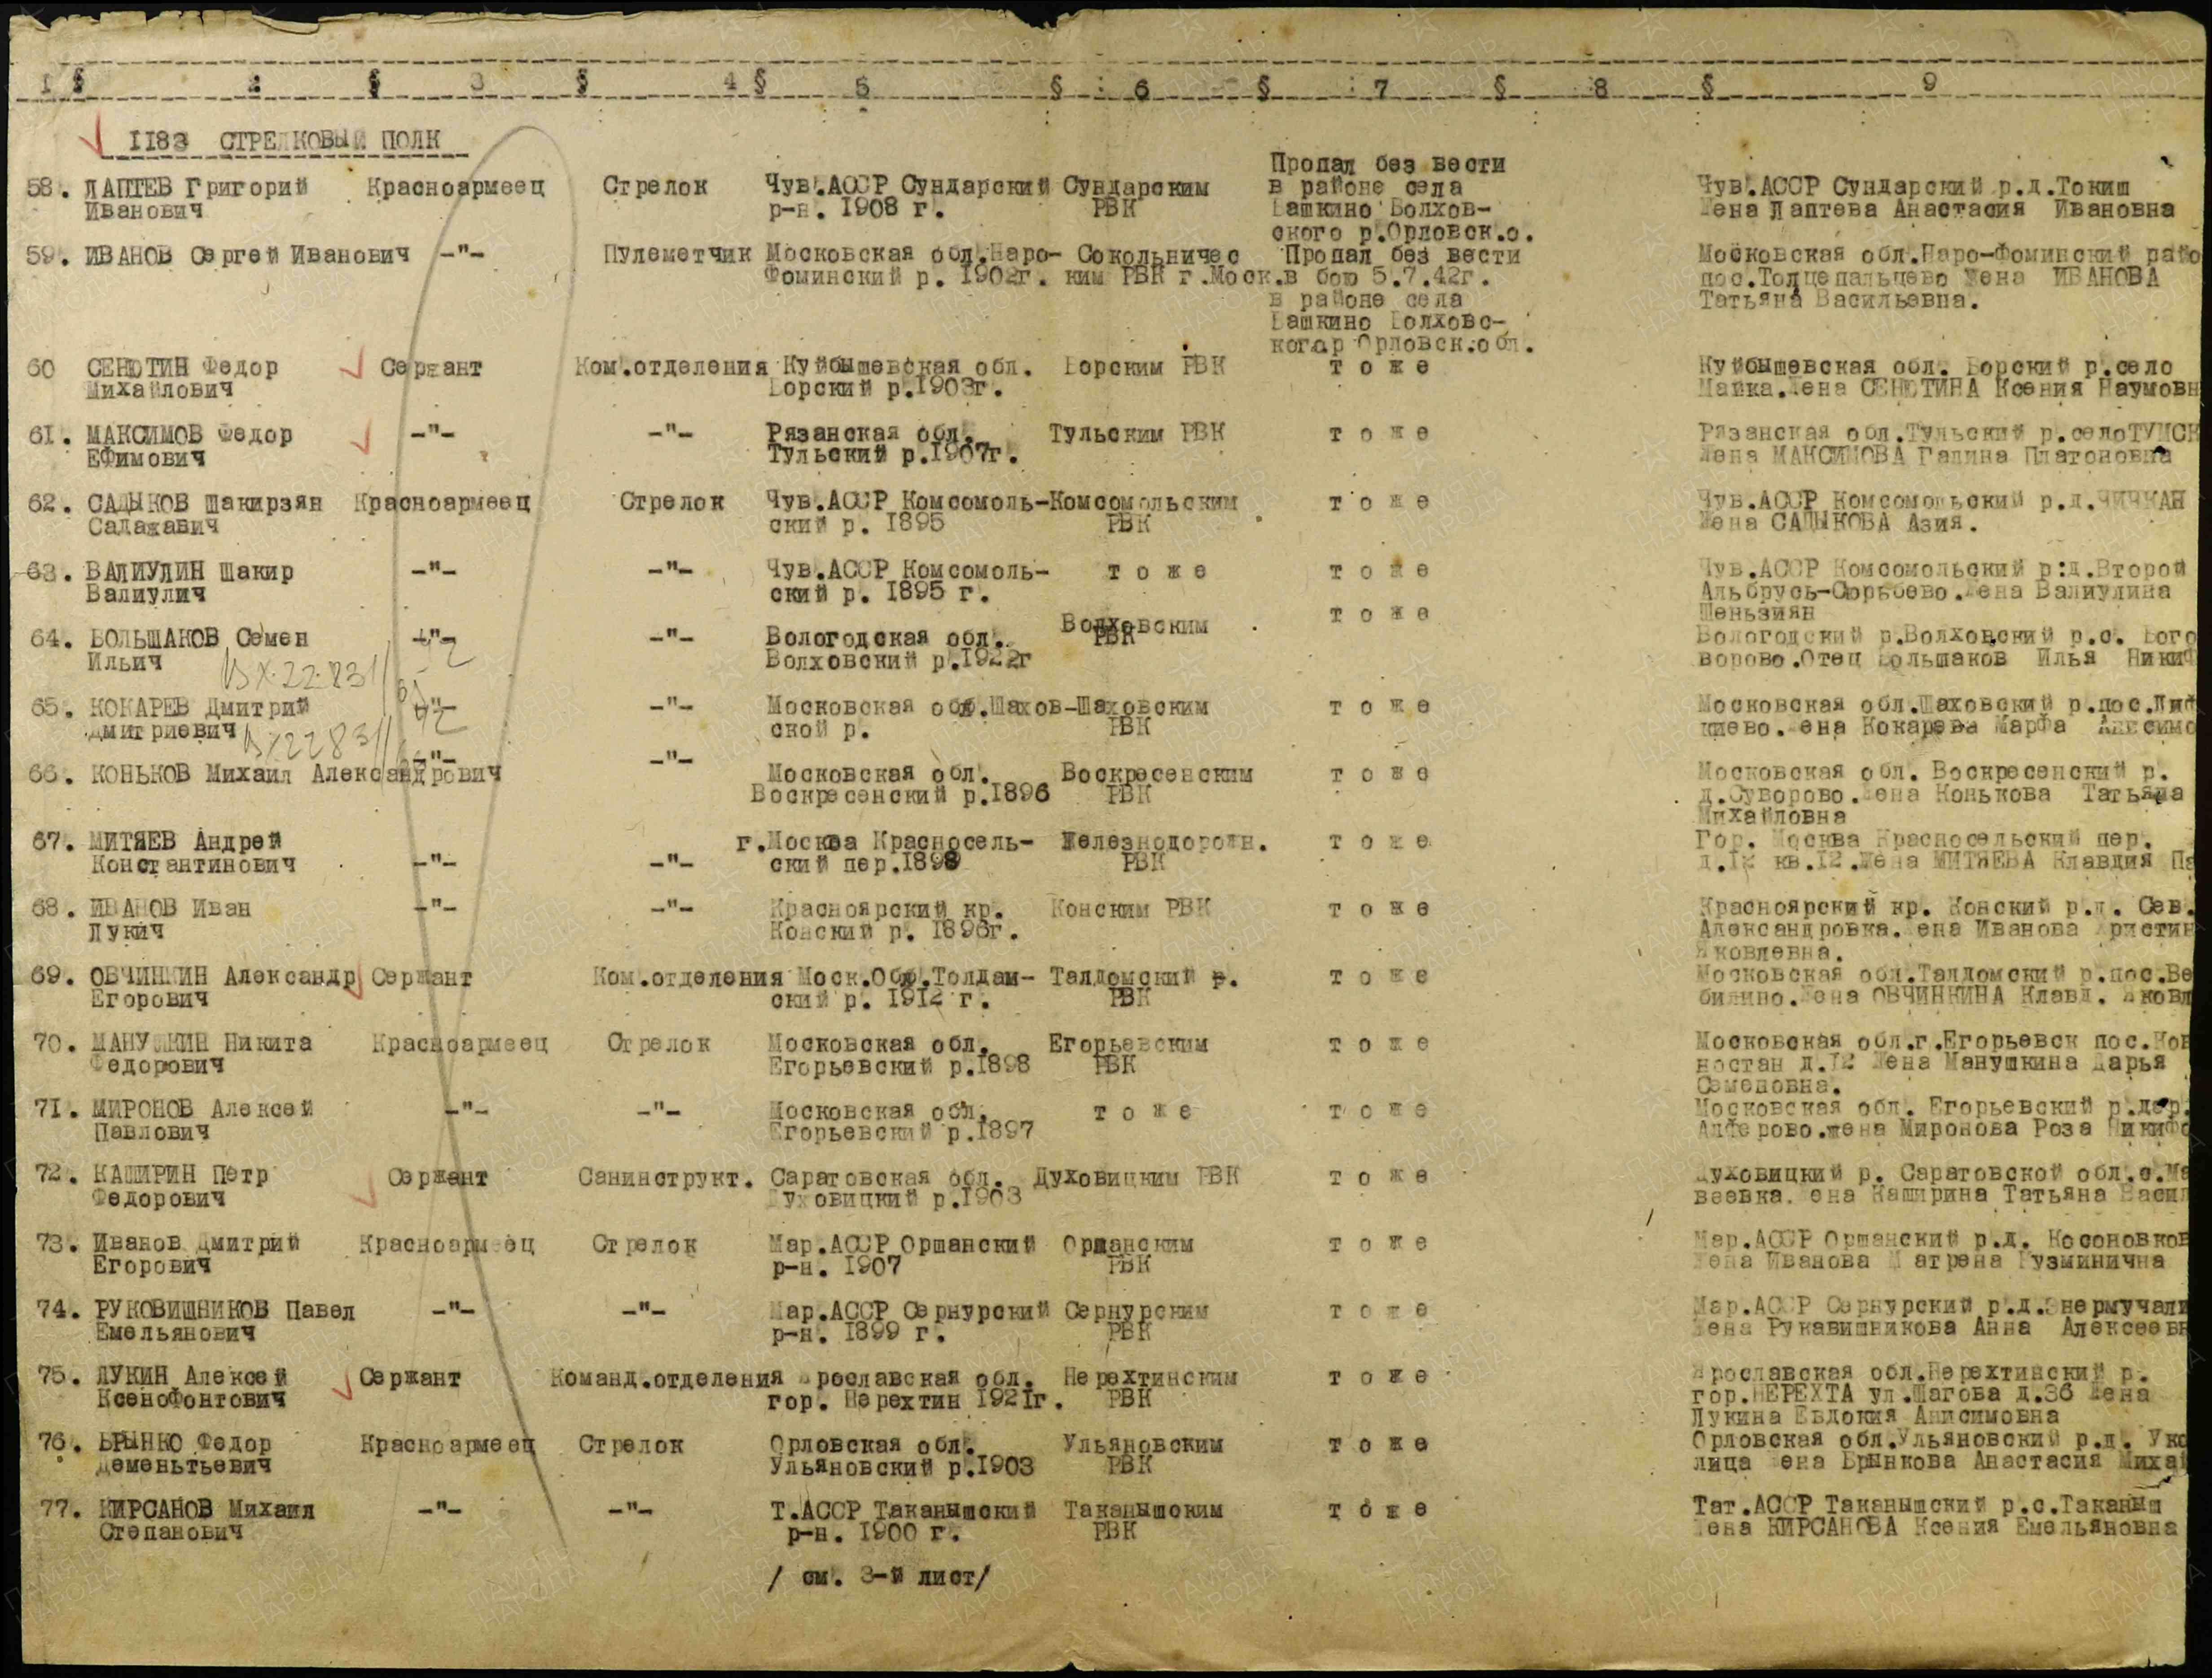 1 § 2 § 3 § 4 § 5 § 6 § 7 § 8 § 9
1183 СТРЕЛКОВЫЙ ПОЛК
58. ЛАПТЕВ Григорий Красноармеец Стрелок Чув.АССР Сундарский Сундарским Пропал без вести в районе села Чув.АССР Сундарский р.д.Токиш
Иванович р-н. 1908 г. РВК Башкино Волхов- Жена Лаптева Анастасия Ивановна
ского р.Орловск.о.
59. ИВАНОВ Сергей Иванович -"- Пулеметчик Московская обл.Наро- Сокольничес Пропал без вести Московская обл.Наро-Фоминский райо
Фоминский р. 1902г. ким РВК г.Моск.в бою 5.7.42г. пос.Толцепальцево Жена ИВАНОВА
в районе села Татьяна Васильевна.
Башкино Волховс-
когар Орловск.обл.
60 СЕНЮТИН Федор Сержант Ком.отделения Куйбышевская обл. Борским РВК т о ж е Куйбышевская обл. Борский р.село
Михайлович Борский р.1903г. Майка.Жена СЕНЮТИНА Ксения Наумовн
61. МАКСИМОВ Федор -"- -"- Рязанская обл. Тульским РВК т о ж е Рязанская обл.Тульский р.селоТУМСК
ЕФимович Тульский р.1907г. Жена МАКСИМОВА Галина Платоновна
62. САДЫКОВ Шакирзян Красноармеец Стрелок Чув.АССР Комсомоль-Комсомольским т о ж е Чув.АССР Комсомольский р.д.ЧИЧКАН
Садахавич ский р. 1895 РВК Жена САДЫКОВА Азия.
63. ВАЛИУЛИН Шакир -"- -"- Чув.АССР Комсомоль- т о ж е т о ж е Чув.АССР Комсомольский р:д.Второй
Валиулич ский р. 1895 г. Альбрусь-Сюрьбево.Жена Валиулина
т о ж е Шеньзиян
64. БОЛЬШАКОВ Семен -"- -"- Вологодская обл. Волховским РВК Вологодский р.Волховский р.с. Бого
Ильич Волховский р.1922г ворово.Отец Большаков Илья Никиф
Вх.22831
65. КОКАРЕВ Дмитрий -"- -"- Московская обл.Шахов-Шаховским т о ж е Московская обл.Шаховский р.пос.Лиф
Дмитриевич ской р. РВК циево.Жена Кокарева Марфа Анисимо
Вх22831
66. КОНЬКОВ Михаил Александрович -"- -"- Московская обл. Воскресенским т о ж е Московская обл. Воскресенский р.
Воскресенский р.1896 РВК д.Суворово.Жена Конькова Татьяна
Михайловна
67. МИТЯЕВ Андрей г.Москва Красносель- Железнодорожн. т о ж е Гор. Москва Красносельский пер.
Константинович -"- -"- ский пер.1898 РВК д.12 кв.12.Жена МИТЯЕВА Клавдия Па
68. ИВАНОВ Иван -"- -"- Красноярский кр. Конским РВК т о ж е Красноярский кр. Конский р.д. Сев.
Лукич Конский р. 1896г. Александровка.Жена Иванова Христин
Яковлевна.
69. ОВЧИНКИН Александр Сержант Ком.отделения Моск.Обл.Толдам- Талдомский р. т о ж е Московская обл.Талдомский р.пос.Ве
Егорович ский р. 1912 г. РВК билино.Жена ОВЧИНКИНА Клавд. Яковл
70. МАНУШКИН Никита Красноармеец Стрелок Московская обл. Егорьевским т о ж е Московская обл.г.Егорьевск пос.Кон
Федорович Егорьевский р.1898 РВК ностан д.12 Жена Манушкина Дарья
Семеновна.
71. МИРОНОВ Алексей -"- -"- Московская обл. т о ж е т о ж е Московская обл. Егорьевский р.дер.
Павлович Егорьевский р.1897 Алферово.жена Миронова Роза Никифо
72. КАШИРИН Петр Сержант Санинструкт. Саратовская обл. Духовицким РВК т о ж е Духовицкий р. Саратовской обл.с.Ма
Федорович Духовицкий р.1903 веевка.Жена Каширина Татьяна Васил
73. Иванов Дмитрий Красноармеец Стрелок Мар.АССР Оршанский Оршанским т о ж е Мар.АССР Оршанский р.д. Косоновков
Егорович р-н. 1907 РВК Жена Иванова Матрена Кузминична
74. РУКОВИШНИКОВ Павел -"- -"- Мар.АССР Сернурский Сернурским т о ж е Мар.АССР Сернурский р.д.Энермучали
Емельянович р-н. 1899 г. РВК Жена Рукавишникова Анна Алексеевн
75. ЛУКИН Алексей Сержант Команд.отделения Ярославская обл. Нерехтинским т о ж е Ярославская обл.Нерехтинский р.
КсеноФонтович гор. Нерехтин 1921г. РВК гор.НЕРЕХТА ул.Шагова д.36 Жена
Лукина Евдокия Анисимовна
76. БРЫНКО Федор Красноармеец Стрелок Орловская обл. Ульяновским т о ж е Орловская обл.Ульяновский р.д. Уко
Деменьтьевич Ульяновский р.1903 РВК лица Жена Брынкова Анастасия Михай
77. КИРСАНОВ Михаил -"- -"- Т.АССР Таканышский Таканышским т о ж е Тат.АССР Таканышский р.с.Таканыш
Степанович р-н. 1900 г. РВК Жена КИРСАНОВА Ксения Емельяновна
/ см. 3-й лист/